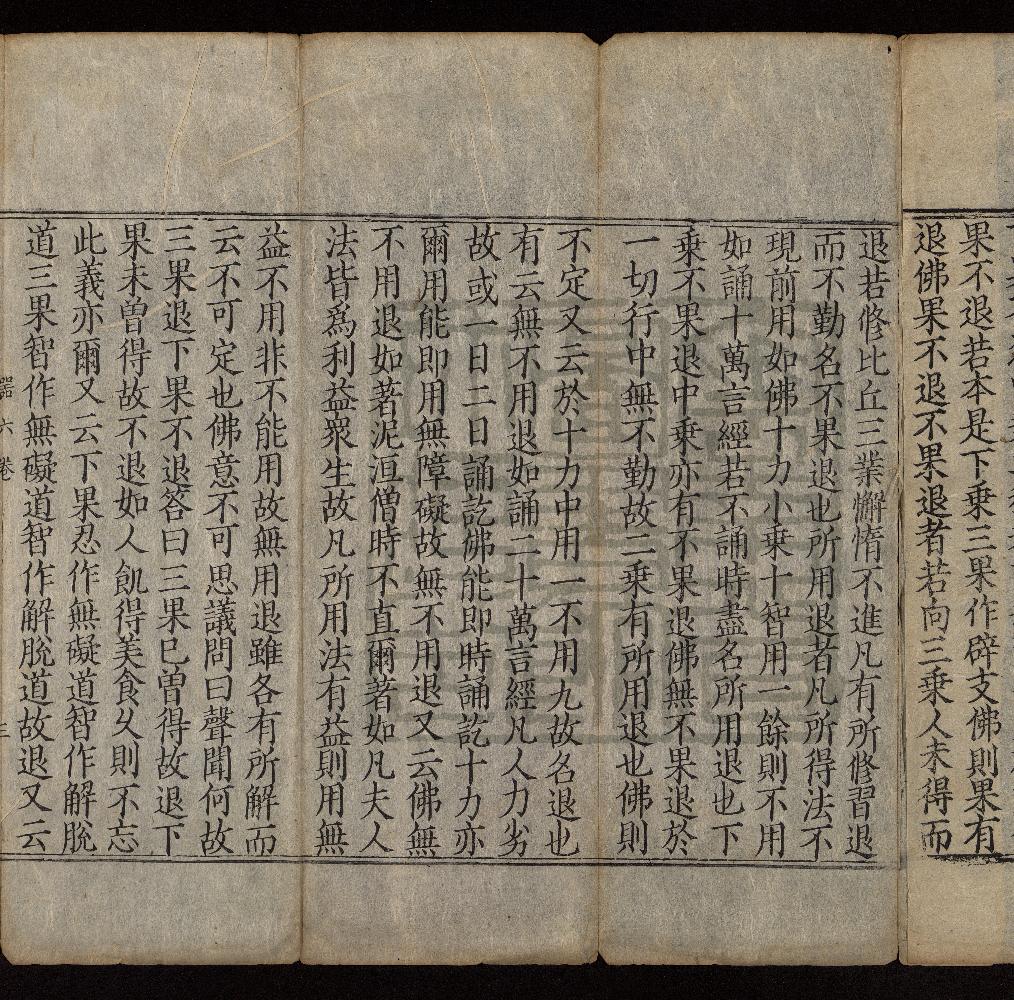 果不退若本是下乘三果作辟支佛則果有
退佛果不退不果退者若向三乘人未得而
退若修比丘三業懈惰不進凡有所修習退
而不勤名不果退也所用退者凡所得法不
現前用如佛十力小乘十智用一餘則不用
如誦十萬言經若不誦時盡名所用退也下
乘不果退中乘亦有不果退佛無不果退於
一切行中無不勤故二乘有所用退也佛則
不定又云於十力中用一不用九故名退也
有云無不用退如誦二十萬言經凡人力劣
故或一日二日誦訖佛能即時誦訖十力亦
爾用能即用無障礙故無不用退又云佛無
不用退如著泥洹僧時不直爾著如凡夫人
法皆爲利益眾生故凡所用法有益則用無
益不用非不能用故無用退雖各有所解而
云不可定也佛意不可思議問曰聲聞何故
三果退下果不退答曰三果已曾得故退下
果未曾得故不退如人飢得美食久則不忘
此義亦爾又云下果忍作無礙道智作解脫
道三果智作無礙道智作解脫道故退又云